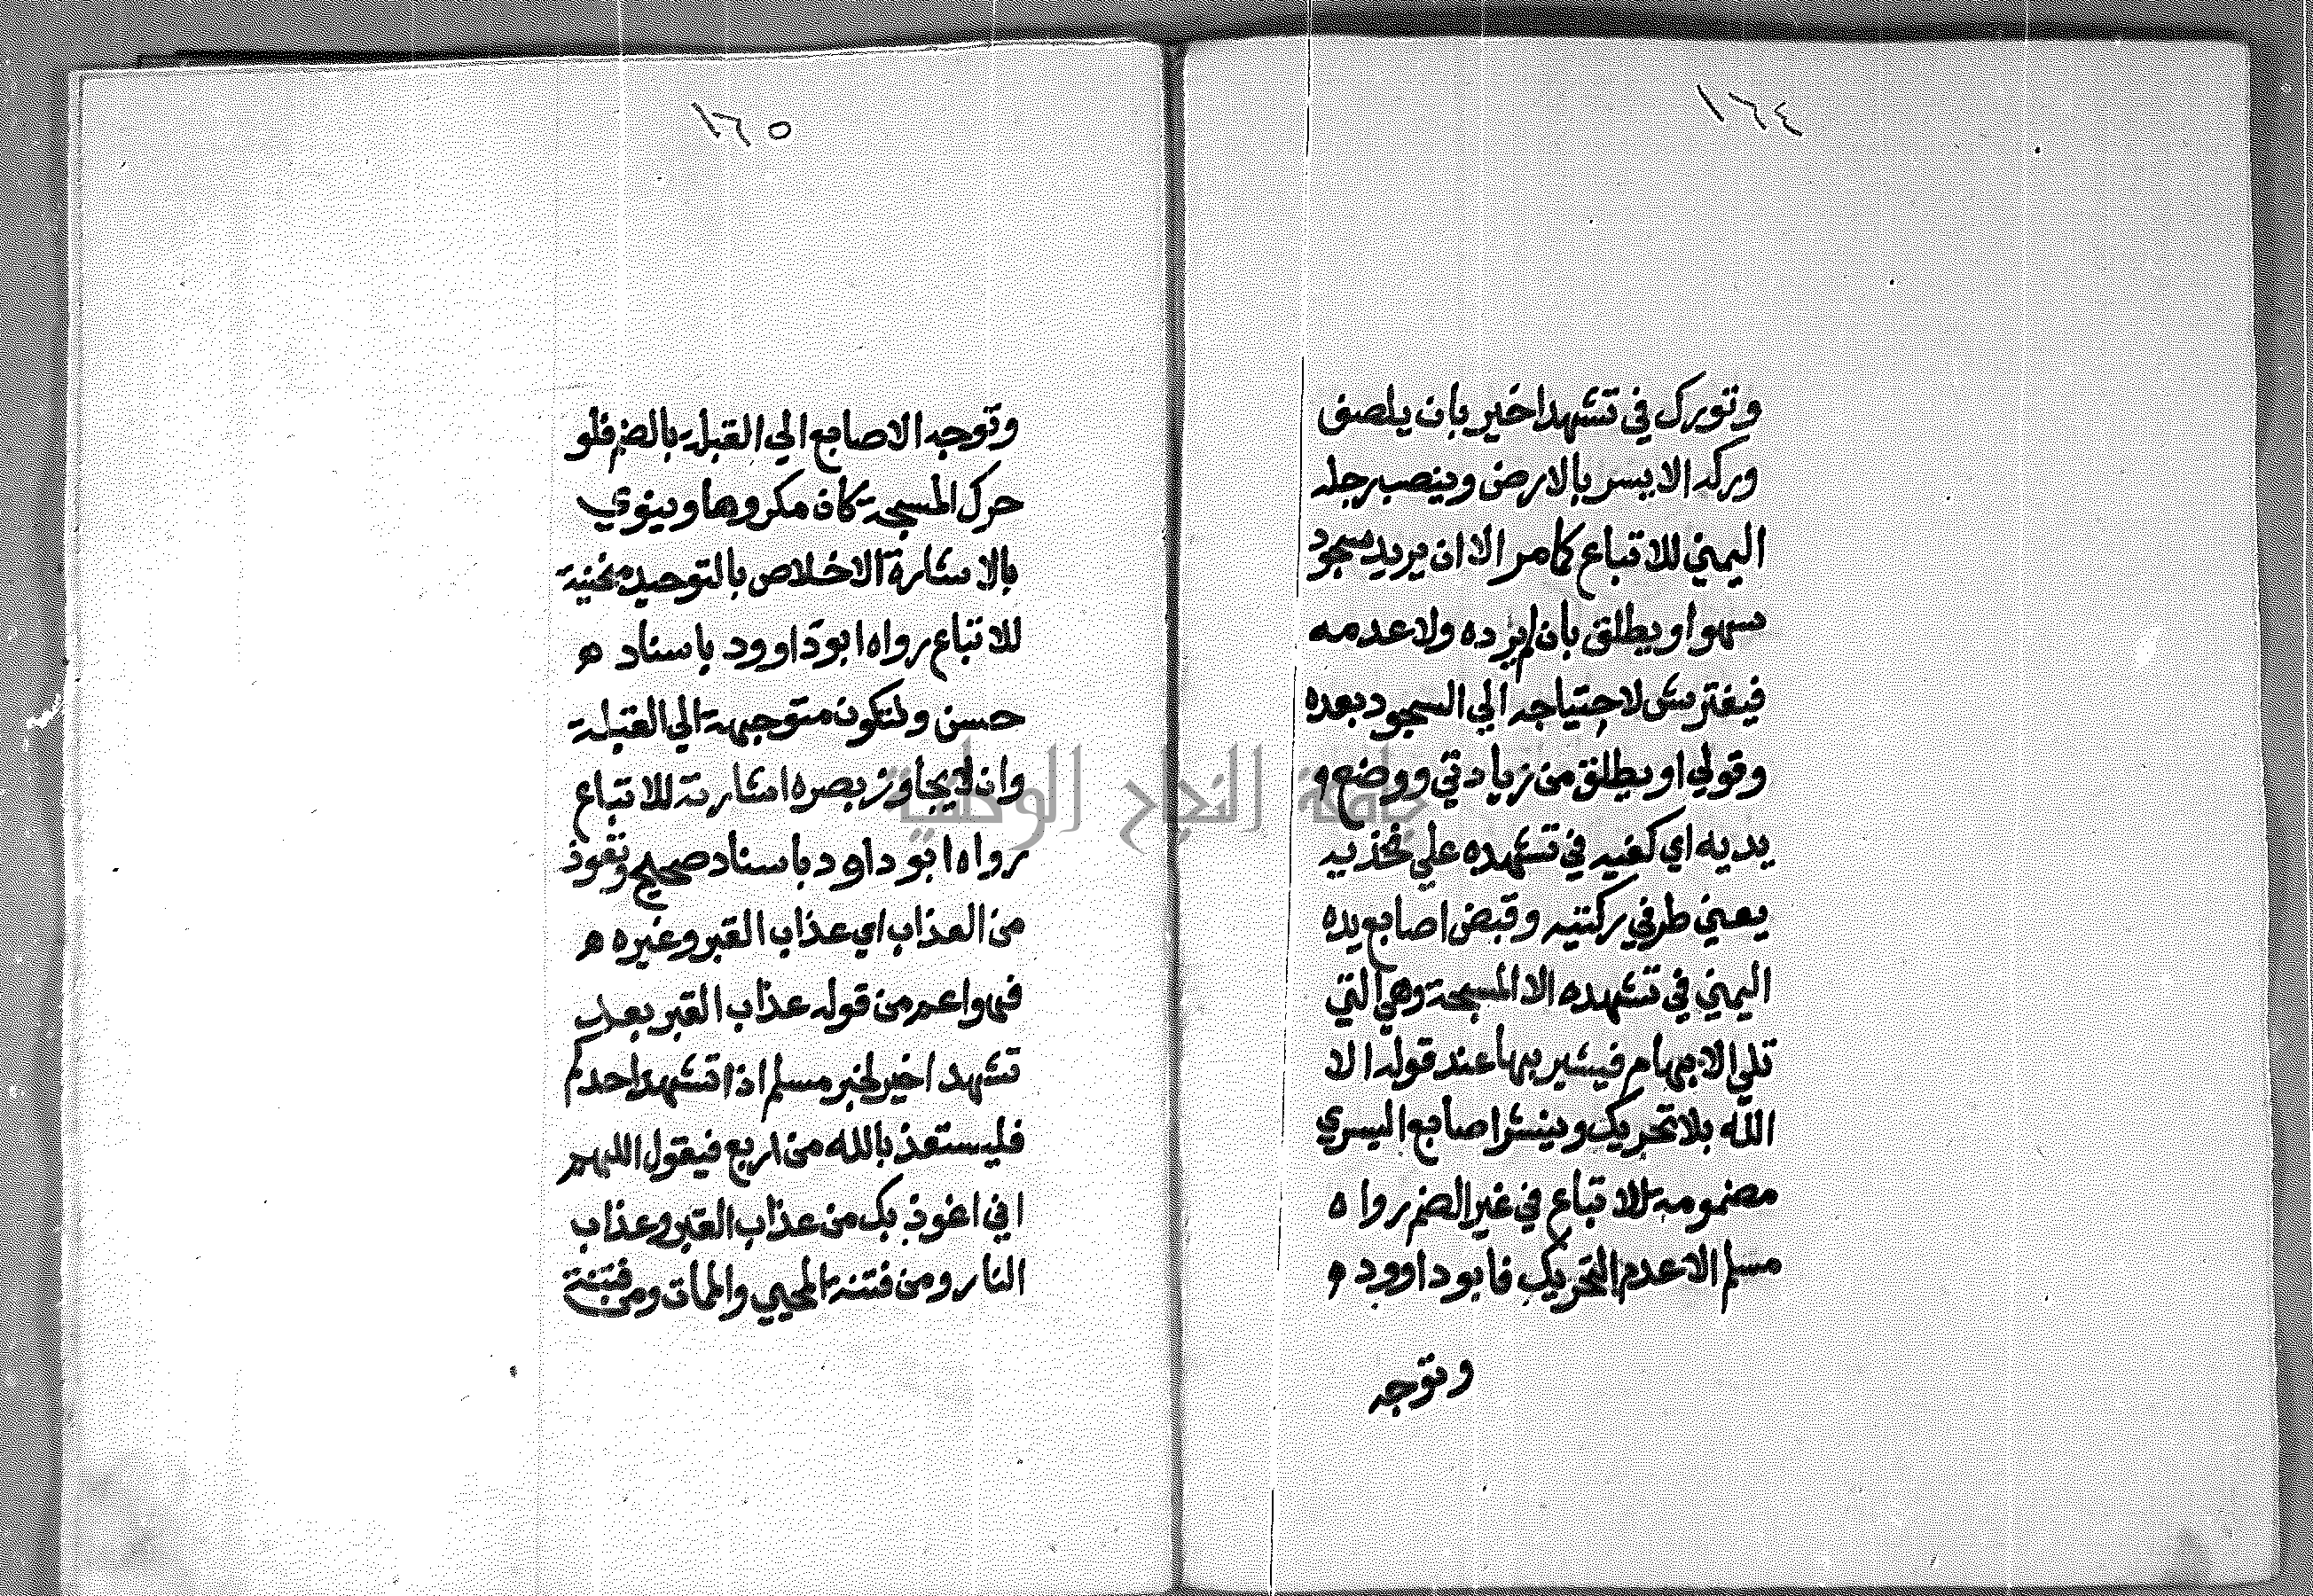 ١٦٤
وتورك في تشهد اخير بان يلصق
وركه الايسر بالارض وينصب رجله
اليمني للاتباع كما مر الا ان يريد سجود
سهو او يطلق بان لم يرده ولا عدمه
فيفترش لاحتياجه الي السجود بعده
وقولي او يطلق من زيادتي ووضع و
يديه اي كفيه في تشهده علي فخذيه
يعني طرفي ركبتيه وقبض اصابع يده
اليمني في تشهده الا المسبحة وهي التي
تلي الابهام فيشير بها عند قوله الا
الله بلا تحريك وينشر اصابع اليسري
مضمومة للاتباع في غير الضم رواه
مسلم الا عدم التحريك فابو داوود ه
وتوجه
١٦٥
وتوجه الاصابع الي القبلة بالضم فلو
حرك المسبحة كان مكروها وينوي
بالاشارة الاخلاص بالتوحيد منحنية
للاتباع رواه ابو داوود باسناد ه
حسن ولتكون متوجهة الي القبلة
وان لا يجاوز بصره اشارته للاتباع
رواه ابو داود باسناد صحيح وتعوذ
من العذاب اي عذاب القبر وغيره ه
فهو اعم من قوله عذاب القبر بعد
تشهد اخير لخبر مسلم اذا تشهد احدكم
فليستعذ بالله من اربع فيقول اللهم
اني اعوذ بك من عذاب القبر وعذاب
النار ومن فتنة المحيي والممات ومن فتنة
جامعة النجاح الوطنية